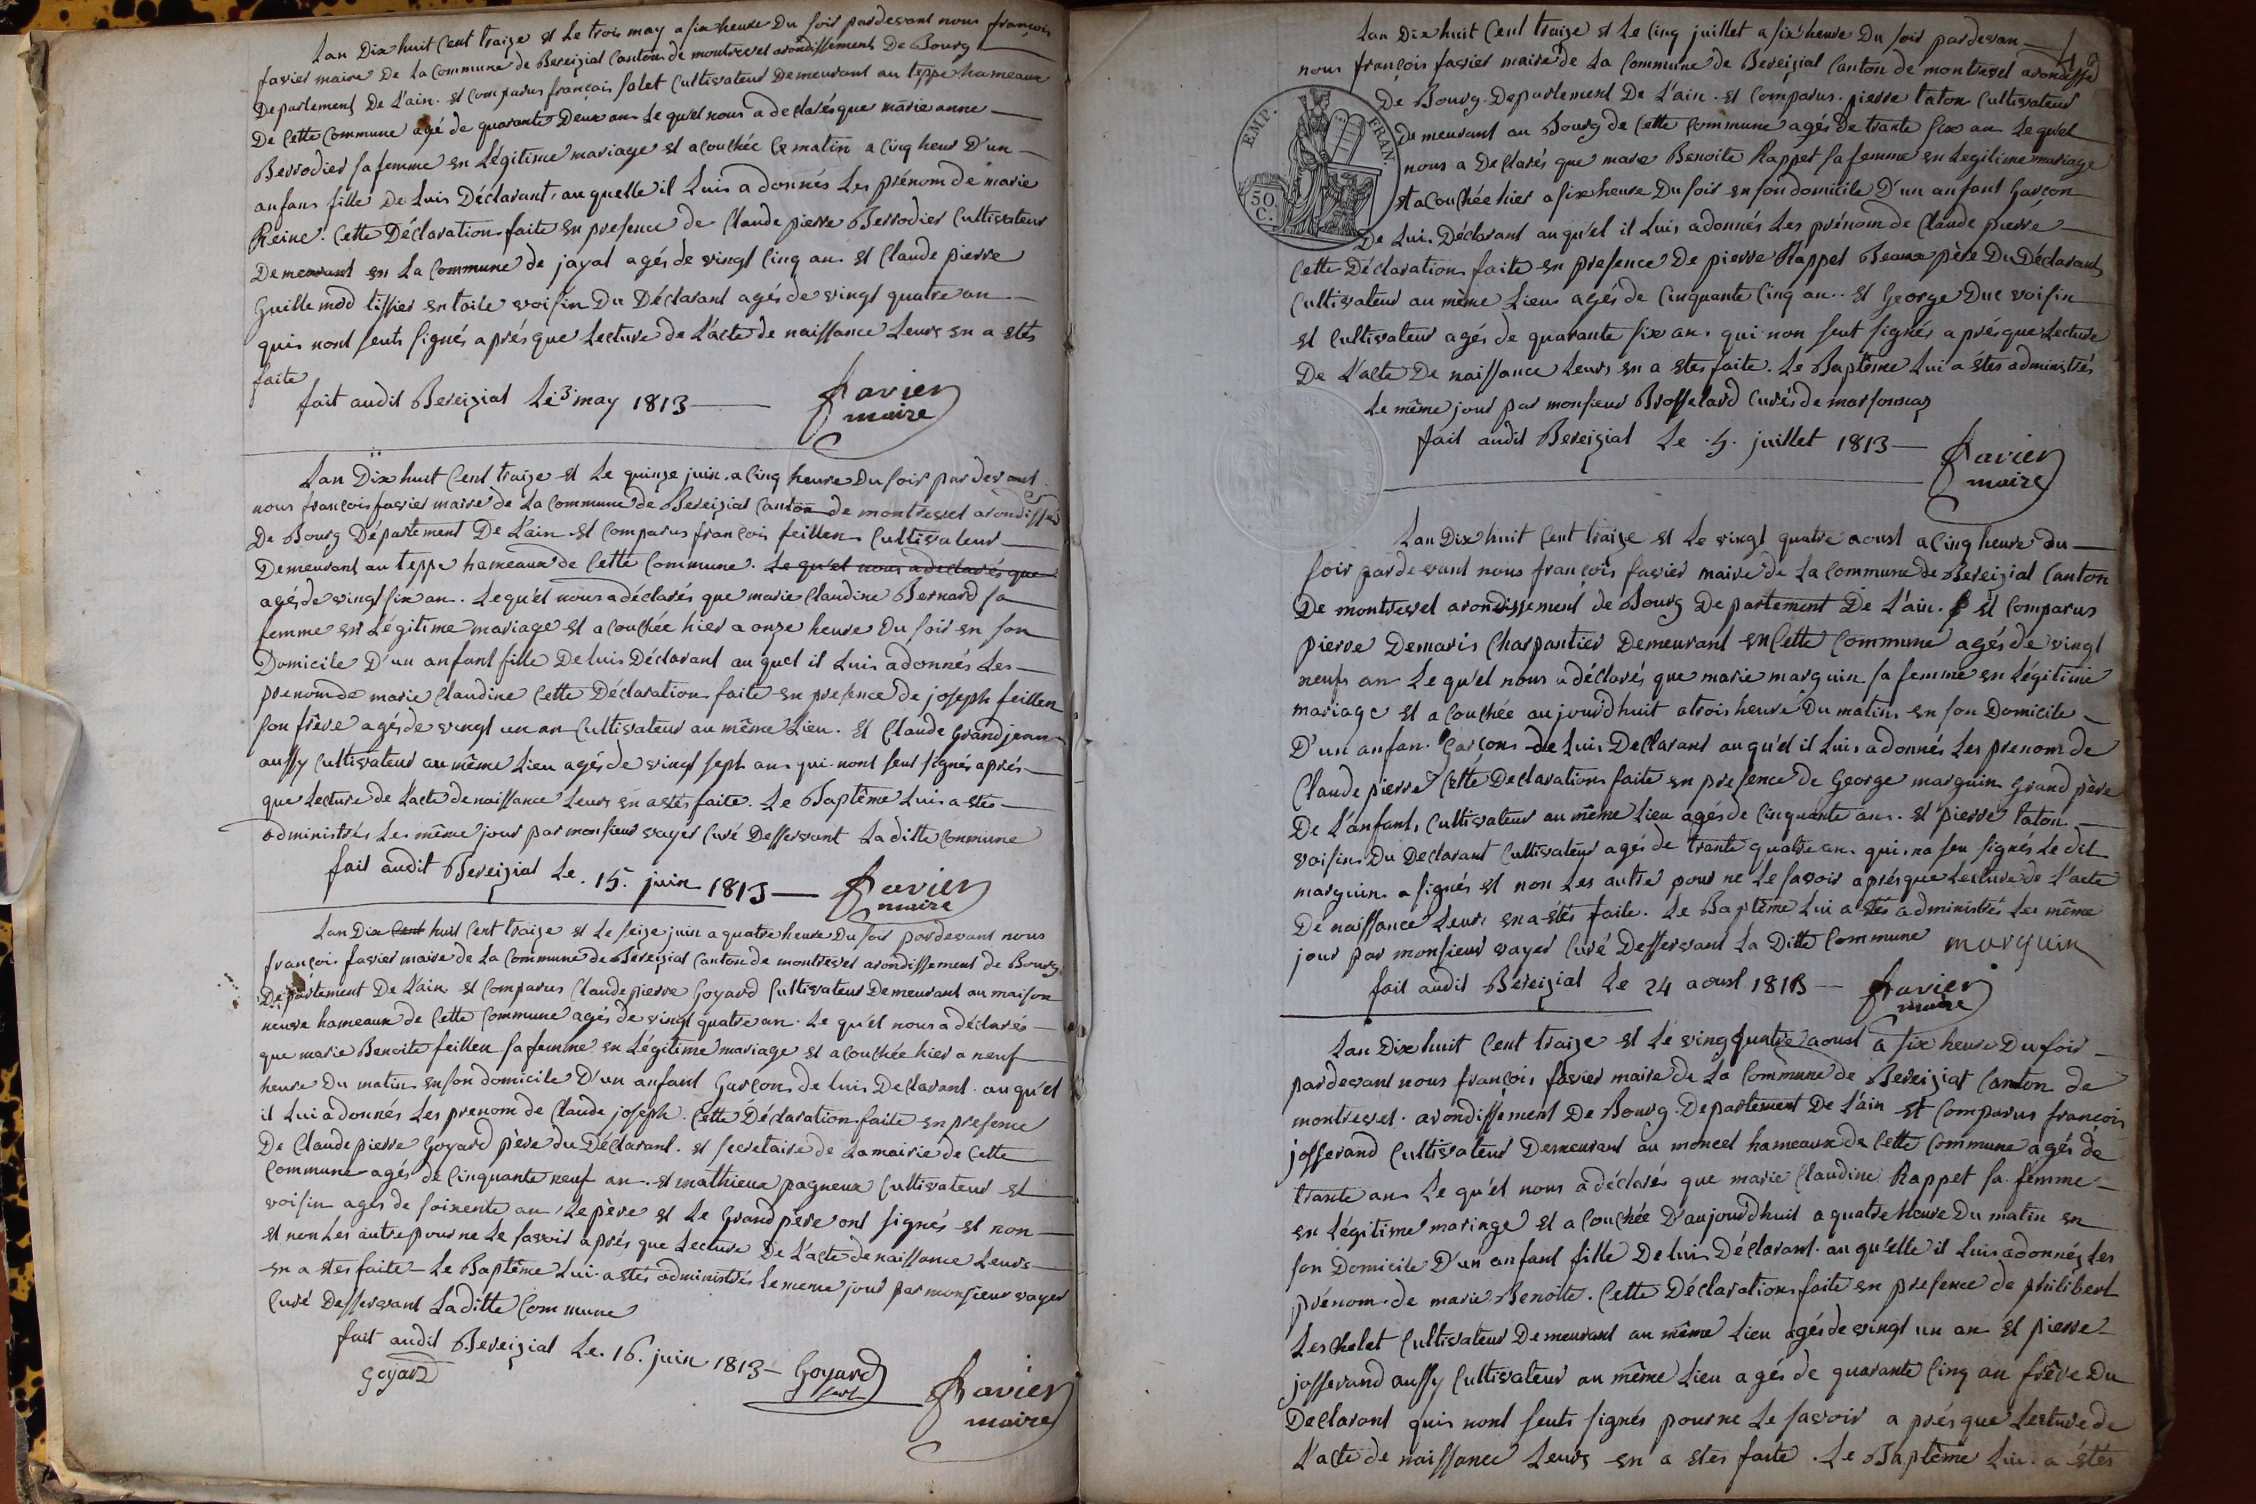 Lan Dix huit Cent traize et Le trois may a six heure Du soir pardevant nous françois
favier maire De La Commune de Bereiziat Canton de montrevel arondissement De Bourg
Departement De L'ain. et Comparus françois salet Cultivateur Demeurant au teppe hameaux
De Cette Commune agé de quarante Deux an Le qu'el nous a declarés que marie anne
Berrodier sa femme en Légitime mariage et acouchée Ce matin a Cinq heur D'un
anfans fille De Luis Déclarant, au quelle il Luis a donnés Les prénom de marie
Reine. Cette Déclaration faite en presence de Claude pierre Berrodier Cultivateur
Demeurant en La Commune de jayat agés de vingt Cinq an et Claude pierre
Guille mod tissier en toile voisin Du Déclarant agés de vingt quatre an
quis nont seuts signés aprés que Lecture de L'acte de naissance Leurs en a etés
faite
fait audit Bereiziat Le 3 may 1813
favier
maire
Lan Dix huit Cent traize et Le quinze juin a Cinq heure Du soir par devant
nous françois favier maire de La Commune de Bereiziat Canton de montrevel arondissé
De Bourg Département De L'ain et Comparus françois feillen Cultivateur
Demeurant au teppe hameaux de Cette Commune. Le qu'el nous a declarés que
agés de vingt six an. Le qu'el nous a déclarés que marie Claudine Bernard sa
femme en Légitime mariage et a couchée hier a onze heure Du soir en son
Domicile D'un anfant fille De luis Déclarant au quel il Luis a donnés Les
prenom de marie Claudine Cette Déclaration faite en presence de joseph feillen
son frêre agés de vingt un an Cultivateur au même Lieu. et Claude Grandjean
aussy Cultivateur au même Lieu agés de vingt sept an qui nont seut signés aprés
que Lecture de Lacte de naissance Leurs en a etés faite. Le Baptême Luis a etés
administrés Les même jour par monsieur vayer Curé Desservant La ditte Commune
fait audit Bereiziat Le . 15. juin 1813
favier
maire
Lan Dix Cent huit Cent traize et Le seize juin a quatre heure Du soir pardevant nous
françois favier maire de La Commune de Bereiziat Canton de montrevel arondissement de Bourg
Département De L'ain et Comparus Claude pierre Goyard Cultivateur Demeurant au maison
neuve hameaux de Cette Commune agés de vingt quatre an. Le qu'el nous a déclarés
que marie Benoite feillen sa femme en Légitime mariage et a couchée hier a neuf
heure Du matin en son domicile D'un anfant Garçon de luis Declarant. au qu'el
il Lui a donnés Les prenom de Claude joseph. Cette Déclaration faite en presence
De Claude pierre Goyard pêre du Déclarant. et secretaire de La mairie de Cette
Commune agés de Cinquante neuf an. et mathieux pagneux Cultivateur et
voisin agés de soixente an, Le pêre et Le Grand pêre ont signés et non
et non Les autre pour ne Le savoir aprés que Lecture De L'acte de naissance Leurs
en a etés faite Le Baptême Lui a etés administrés le meme jour par monsieur vayer
Curé Desservant La ditte Commune
fait audit Bereiziat Le. 16. juin 1813
Goyard
Goyard
favier
maire
Lan Dix huit Cent traize et Le Cinq juillet a six heure Du soir pardevan
nous françois favier maire de La Commune de Bereiziat Canton de montrevel arondissé
De Bourg Departement De L'ain. et Comparus. pierre taton Cultivateur
Demeurant au Bourg de Cette Commune agés de trante six an Le qu'el
nous a Declarés que marie Benoite Rappet sa femme en Legitime mariage
et a Couchée hier a six heure Du soir en son domicile D'un anfant Garçon
De Luis Déclarant au qu'el il Luis a donnés Les prénom de Claude pierre
Cette Déclaration faite en presence De pierre Rappet Beaux pêre Du Déclarant
Cultivateur au même Lieu agés de Cinquante Cinq an. et George Duc voisin
et Cultivateur agés de quarante six an. qui non seut signés a prés que Lecture
De L'acte De naissance Leurs en a etes faite. Le Baptême Lui a êtes administrés
Le même jour par monsieur Brosselard Curés de marsonnas
fait audit Bereiziat Le . 5. juillet 1813
favier
maire
EMP. FRAN.
50. C.
Lan Dix huit Cent traize et Le vingt quatre aoust a Cinq heure du
soir pardevant nous françois favier maire de La Commune de Bereiziat Canton
De montrevel arondissement de Bourg Departement De L'ain. et Comparus
pierre Demaris Charpantier Demeurant en Cette Commune agés de vingt
neufs an Le qu'el nous a déclarés que marie marguin sa femme en Légitime
mariage et a Couchée aujourd'huit a trois heure Du matin en son Domicile
D'un anfan. Garçons de Luis Declarant au qu'el il Luis a donnés Les prenom de
Claude pierre Cette Declaration faite en presence de George marguin Grand pêre
De L'anfant, Cultivateur au même Lieu agés de Cinquante an. et pierre taton
voisin Du Declarant Cultivateur agés de trante quatre an. qui na seu signés Le dit
marguin a signés et non Les autre pour ne Le savoir aprés que Lecture de L'acte
De naissance Leurs en a étés faite. Le Baptême Lui a étés administrés Les même
jour par monsieur vayer Curé Desservant La Ditte Commune
marguin
fait audit Bereiziat Le 24 aoust 1813
favier
maire
Lan Dix huit Cent traize et Le ving quatre aoust a six heure Du soir
pardevant nous françois favier maire de La Commune de Bereiziat Canton de
montrevel. arondissement De Bourg. Departement De L'ain et Comparus françois
josserand Cultivateur Demeurant au moncel hameaux de Cette Commune agés de
trante an Le qu'el nous a déclarés que marie Claudine Rappet sa femme
en Légitime mariage et a Couchée D'aujourd'huit a quatre heure Du matin en
son Domicile D'un anfant fille De luis Déclarant. au qu'elle il Luis a donnés Les
prénom de marie Benoite. Cette Déclaration faite en presence de philibert
Leschelet Cultivateur Demeurant au même Lieu agés de vingt un an et pierre
josserand aussy Cultivateur au même Lieu agés de quarante Cinq an frêre Du
Declarant quis nont seuts signés pour ne Le savoir a prés que Lecture de
L'acte de naissance Leurs en a etes faite. Le Baptême Lui a étés